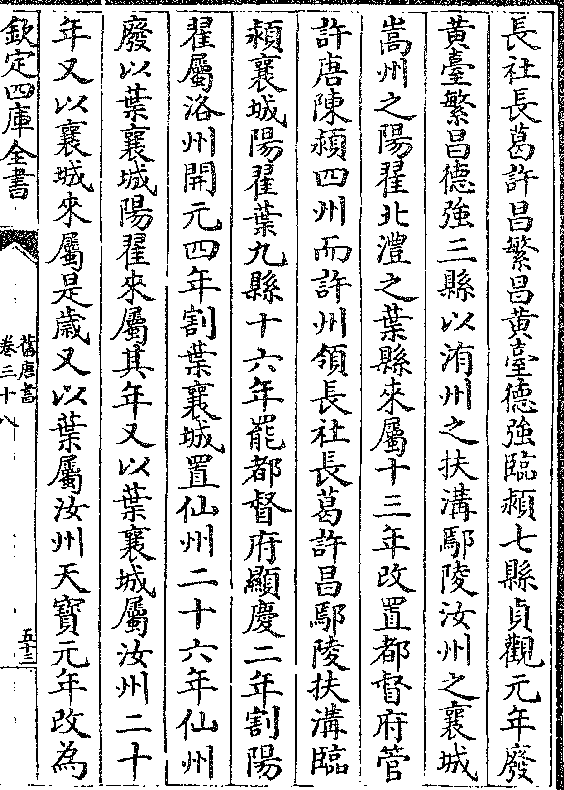 長社長葛許昌繁昌黃臺德強臨潁七縣貞觀元年廢
黃臺繁昌德強三縣以洧州之扶溝鄢陵汝州之襄城
嵩州之陽翟北澧之葉縣來屬十三年改置都督府管
許唐陳潁四州而許州領長社長葛許昌鄢陵扶溝臨
潁襄城陽翟葉九縣十六年罷都督府顯慶二年割陽
翟屬洛州開元四年割葉襄城置仙州二十六年仙州
廢以葉襄城陽翟來屬其年又以葉襄城屬汝州二十
年又以襄城來屬是歲又以葉屬汝州天寶元年改為
欽定四庫全書
舊唐書
卷三十八
五十三